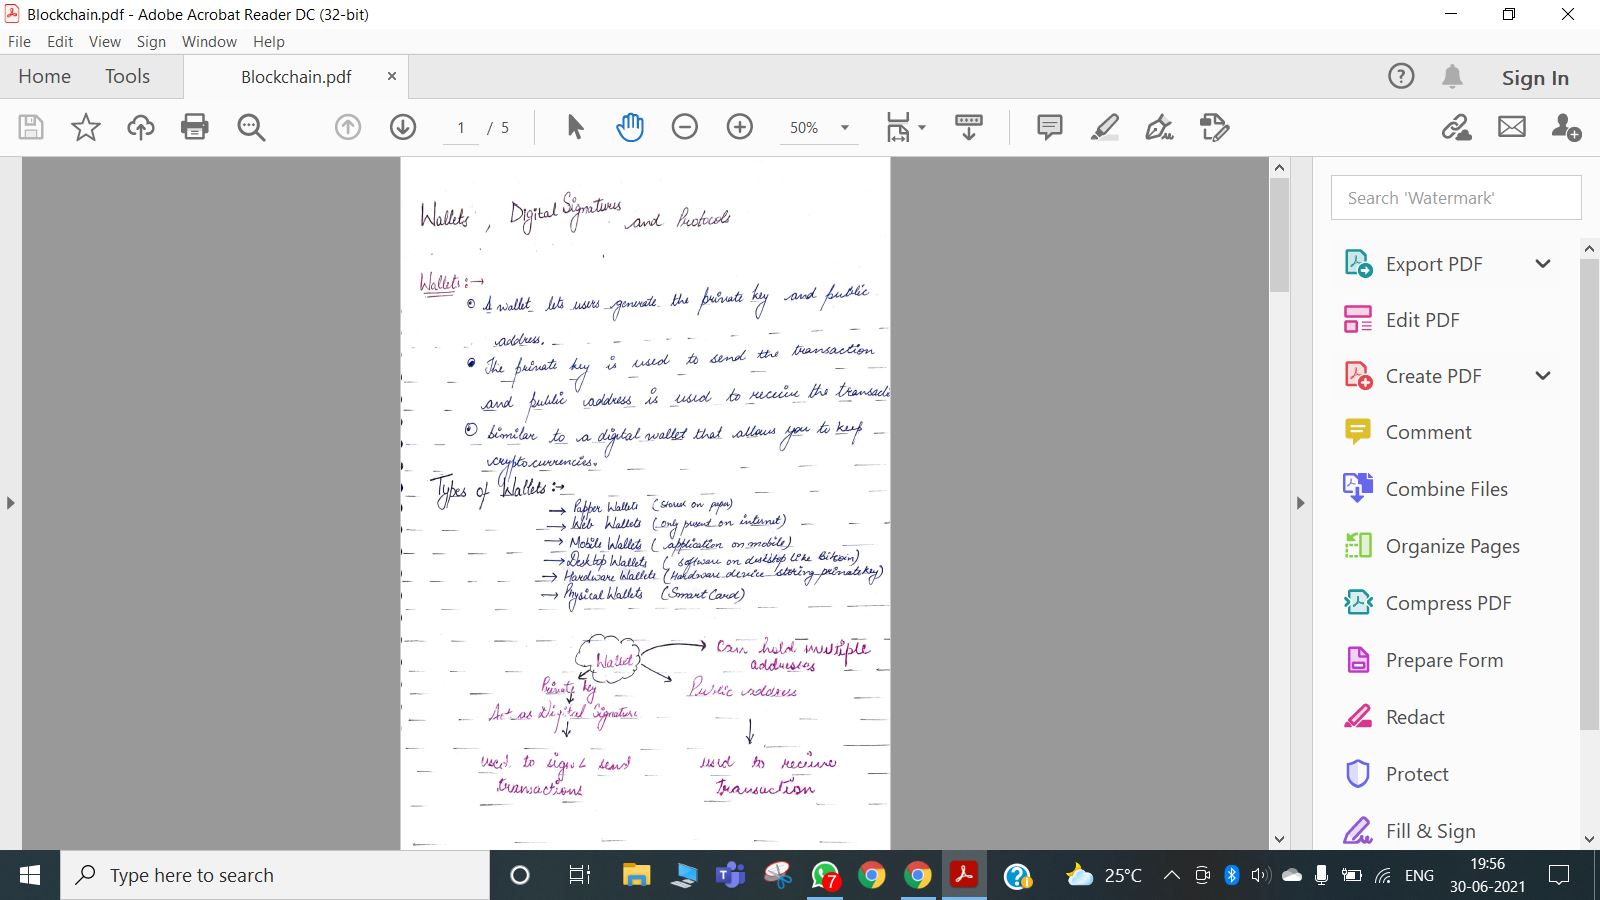 Blockchain.pdf - Adobe Acrobat Reader DC (32-bit)
File Edit View Sign Window Help
Home Tools Blockchain.pdf × Sign In
1 / 5 50%
Wallets, Digital Signatures and Protocols
Wallets:→
A wallet lets users generate the private key and public
address.
The private key is used to send the transaction
and public address is used to receive the transacti
Similar to a digital wallet that allows you to keep
cryptocurrencies.
Types of Wallets:→
→ Papper Wallets (Stored on paper)
→ Web Wallets (only present on internet)
→ Mobile Wallets (application on mobile)
→ Desktop Wallets (software on desktop like Bitcoin)
→ Hardware Wallets (Hardware device storing private key)
→ Physical Wallets (Smart Card)
Wallet
Can hold multiple
addresses
Private key
Public address
Act as Digital Signature
used to sign & send
transactions
used to receive
transaction
Search 'Watermark'
Export PDF
Edit PDF
Create PDF
Comment
Combine Files
Organize Pages
Compress PDF
Prepare Form
Redact
Protect
Fill & Sign
Type here to search
7
25°C
ENG
19:56
30-06-2021